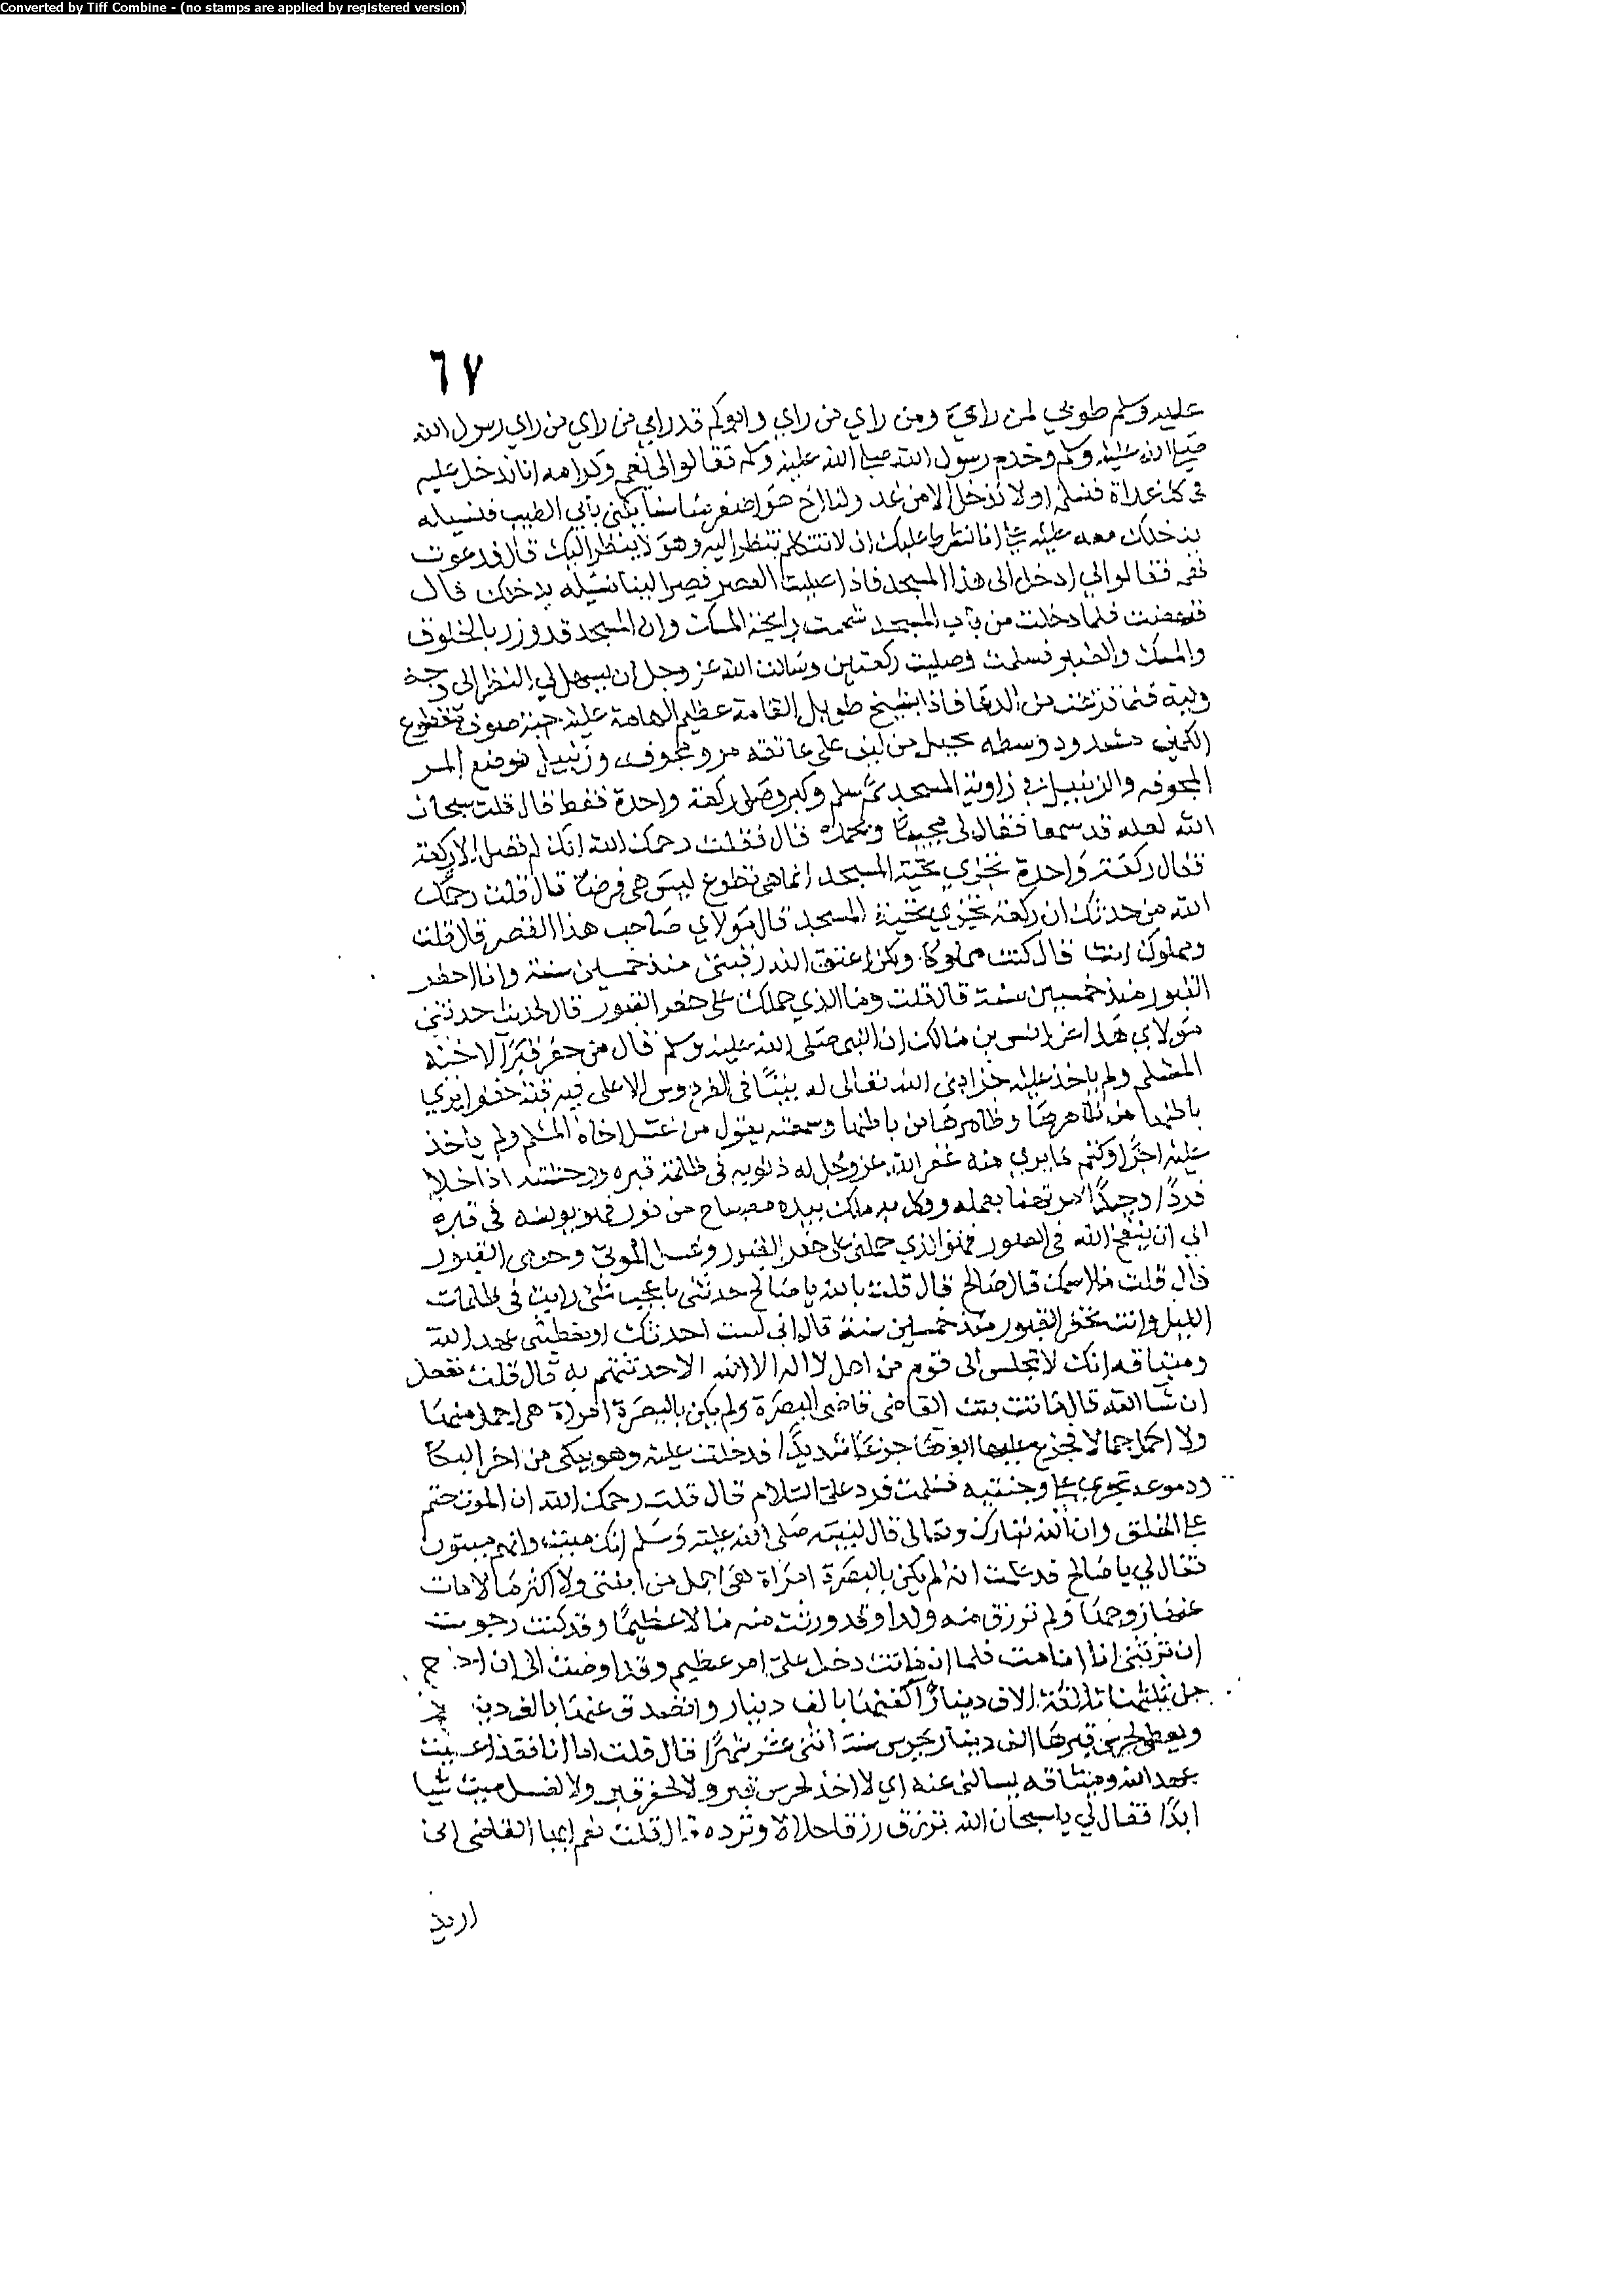 Converted by Tiff Combine - (no stamps are applied by registered version)
٦٧
عليه وسلم طوبى لمن راني ومن راي من راي وابوكم قد راي من راي من راي رسول الله
صلى الله عليه وسلم وخدم رسول الله صلى الله عليه وسلم فقالوا لي نعم وكرامه انا ندخل عليه
في كل غداة فنسلم ولا ندخل الا من غد ولنا اخ هو اصغر منا سنا يكنى بابي الطيب فنسيله
يدخلك معه عليه على انا نشرط عليك ان لا تتكلم تنظر اليه وهو لا ينظر اليك قال فدعوت
فقالوا لي ادخل الى هذا المسجد فاذا صليت العصر فصر الينا نسيله يدخلك قال
فنهضت فلما دخلت من باب المسجد شممت رايحة المسك وان المسجد قد وزر بالخلوق
والمسك والعنبر فسلمت وصليت ركعتين وسالت الله عز وجل ان يسهل لي النظر الى وجه
وليه فلما فرغت من الدعا فاذا بشيخ طويل القامة عظيم الهامة عليه جبة صوف مقطوع
الكمين مشدود وسطه بحبل من ليف على عاتقه مر ومجوفه وزنبيل فوضع المر
المجوفه والزنبيل في زاوية المسجد ثم سلم وكبر وصلى ركعة واحدة فقط قال قلت سبحان
الله لعله قد سمعا فقال لي مجيبا وبحمده قال فقلت رحمك الله انك لم تصل الا ركعة
فقال ركعة واحدة تجزي تحية المسجد انما هي تطوع ليس هي فرضا قال قلت رحمك
الله من حدثك ان ركعة تجزي تحية المسجد قال مولاي صاحب هذا القصر قال قلت
ومملوك انت قال كنت مملوكا ولكن اعتق الله رقبتي منذ خمسين سنة وانا احفر
القبور منذ خمسين سنة قال قلت وما الذي حملك على حفر القبور قال لحديث حدثني
مولاي هذا عن انس بن مالك ان النبي صلى الله عليه وسلم قال من حفر قبرا لاخيه
المسلم ولم ياخذ عليه جزا بنى الله تعالى له بيتا في الفردوس الاعلى فيه قبة خضرا يرى
باطنها من ظاهرها وظاهرها من باطنها وسمعته يقول من غسل اخاه المسلم ولم ياخذ
عليه اجرا وكتم ما يرى منه غفر الله عز وجل له ذنوبه في ظلمة قبره ووحشته اذا خلا
فردا وحيدا مرتهنا بعمله ووكل به ملك بيده مصباح من نور فهو يونسه في قبره
الى ان ينفخ الله في الصور فهو الذي حملني على حفر القبور وغسل الموتى وحرس القبور
قال قلت ما اسمك قال صالح قال قلت بالله يا صالح حدثني باعجب شي رايت في ظلمات
الليل وانت تحفر القبور منذ خمسين سنة قال اني لست احدثك او تعطيني عهد الله
وميثاقه انك لا تجلس الى قوم من اهل لا اله الا الله الا حدثتهم به قال قلت نفعل
ان شا الله قال ماتت بنت القاضي قاضي البصرة ولم يكن بالبصرة امراة هي اجمل منها
ولا اكمل جمالا فجزع عليها ابوها جزعا شديدا فدخلت عليه وهو يبكي من احر البكا
ودموعه تجري على وجنتيه فسلمت فرد علي السلام قال قلت رحمك الله ان الموت حتم
على الخلق وان الله تبارك وتعالى قال لنبيه صلى الله عليه وسلم انك ميت وانهم ميتون
فقال لي يا صالح قد علمت انه لم يكن بالبصرة امراة هي اجمل من ابنتي ولا اكثر مالا مات
عنها زوجها ولم ترزق منه ولدا وقد ورثت منه مالا عظيما وقد كنت رجوت
ان ترثني اذا انا مت فلما ان ماتت دخل علي امر عظيم وقد اوصت الى ان
من ثلثها ثلاثة الاف دينار اكفنها بالف دينار واتصدق عنها بالف
ويعطى لحرس قبرها الف دينار يحرس سنة اثنى عشر شهرا قال قلت اما انا فقد اعطيت
عهد الله وميثاقه يسالني عنه اي لا اخذ لحرس قبر ولا لحفر قبر ولا لغسل ميت شيا
ابدا فقال لي يا سبحان الله ترزق رزقا حلالا وترده قال قلت نعم ايها القاضي اني
اريد